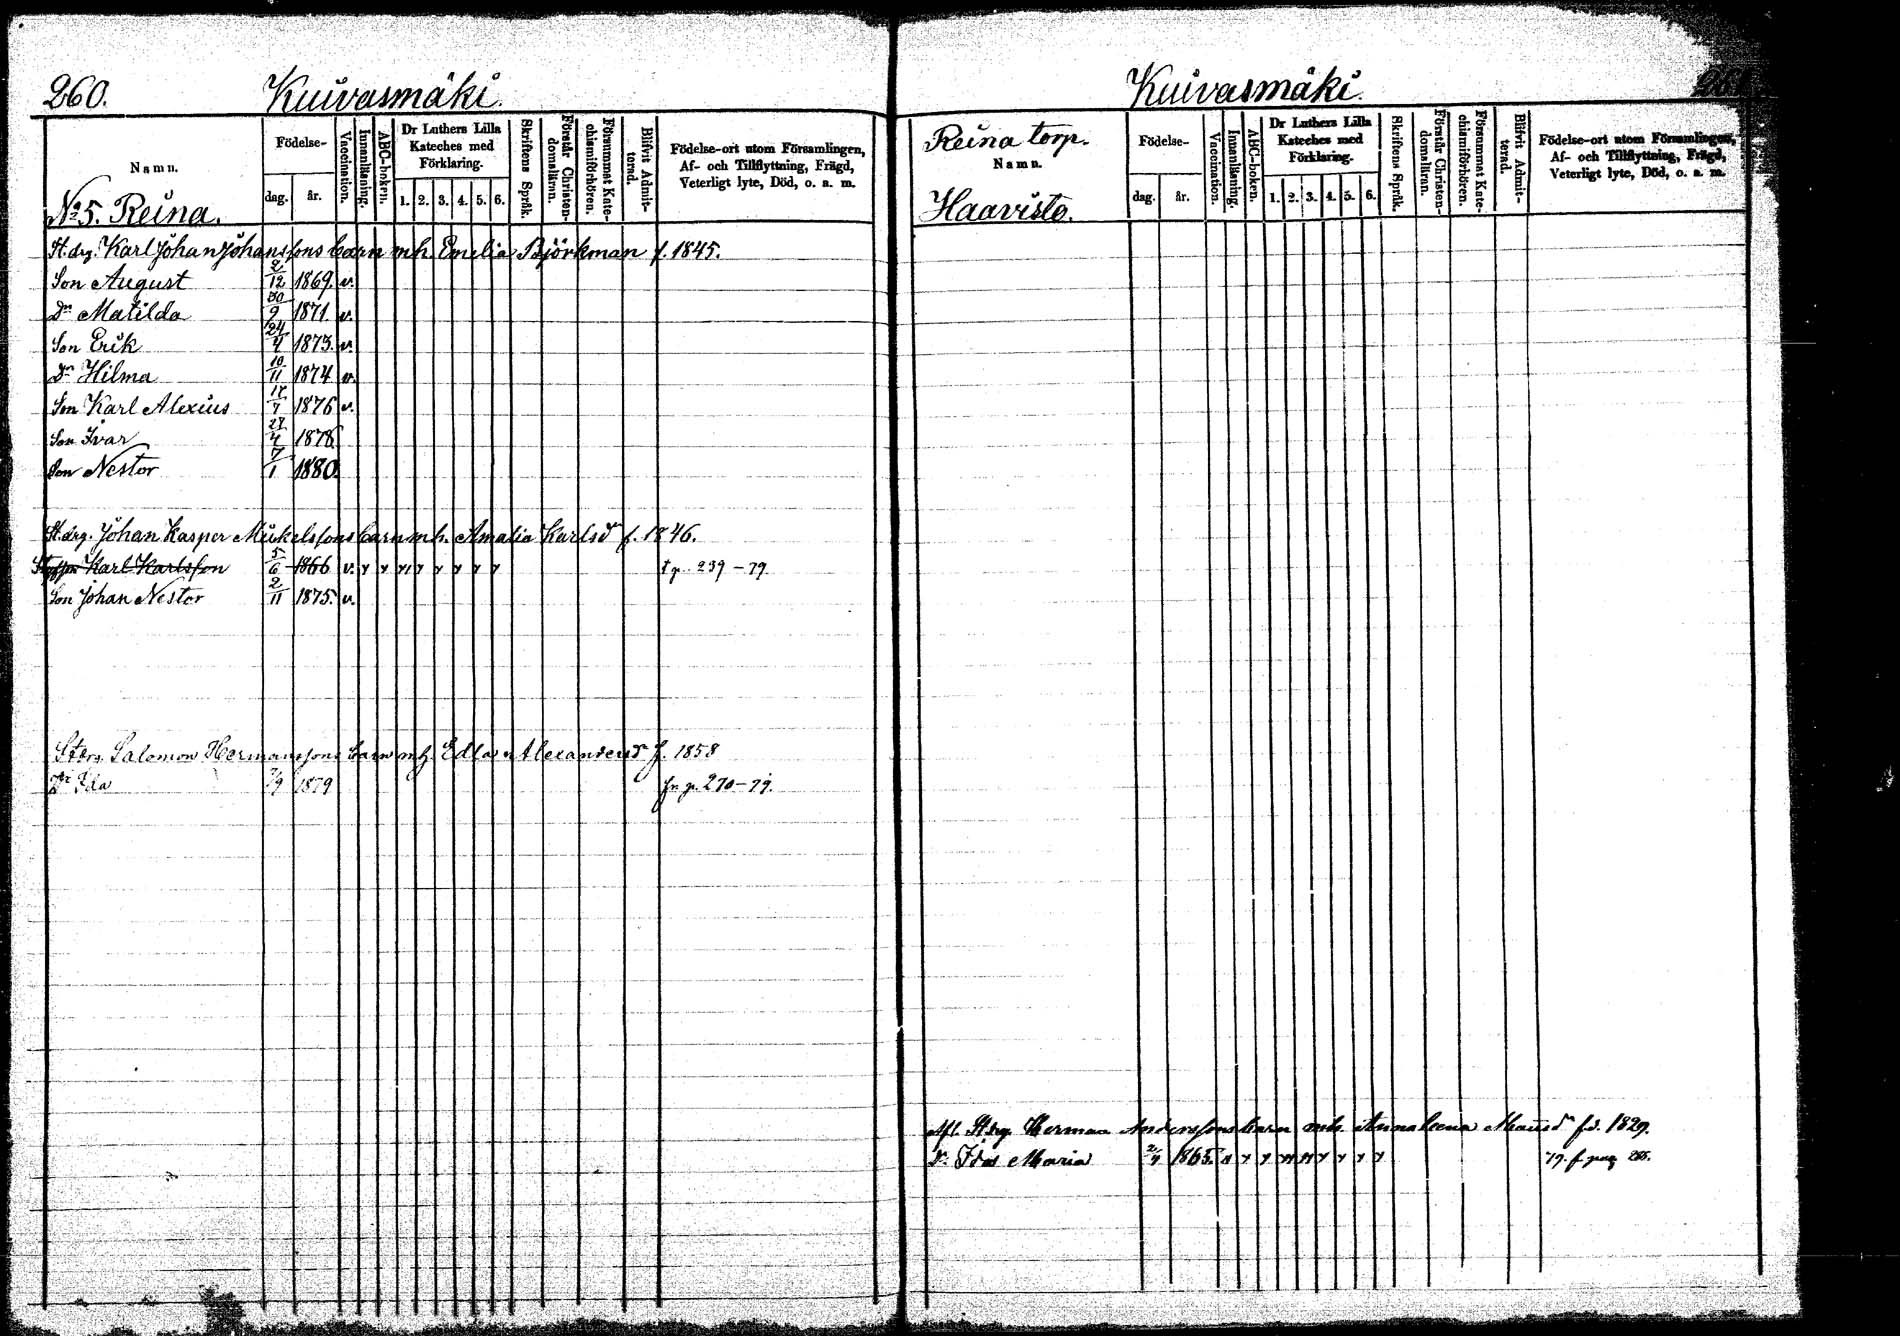 260. Kuivasmäki.
Namn. Födelse- dag. år. Vaccination. Innanläsning. ABC-boken. Dr Luthers Lilla Kateches med Förklaring. 1. 2. 3. 4. 5. 6. Skriftens Språk. Förstår Christendomsläran. Försummat Katechismiförhören. Blifvit Admitterad. Födelse-ort utom Församlingen, Af- och Tillflyttning, Frägd, Veterligt lyte, Död, o. a. m.
No 5. Reina.
St. drg. Karl Johan Johanssons barn mh. Emelia Björkman f. 1845.
Son August 2/12 1869. v.
Dr Matilda 30/9 1871 v.
Son Erik 24/4 1873. v.
Dr Hilma 10/11 1874 v.
Son Karl Alexius 17/7 1876 v.
Son Ivar 27/4 1878.
Son Nestor 7/1 1880.
St. drg. Johan Kasper Mickelssons barn mh. Amalia Karlsdr f. 1846.
Karl Karlsson 5/6 1866 v. t p. 239 - 79
Son Johan Nestor 2/11 1875. v.
Stdrg. Salomon Hermanssons barn mh. Edla Alexandersdr f. 1858
Dr Ida 7/9 1879 fr p. 270 - 79.
Kuivasmäki. 261.
Reina torp.
Namn. Födelse- dag. år. Vaccination. Innanläsning. ABC-boken. Dr Luthers Lilla Kateches med Förklaring. 1. 2. 3. 4. 5. 6. Skriftens Språk. Förstår Christendomsläran. Försummat Katechismiförhören. Blifvit Admitterad. Födelse-ort utom Församlingen, Af- och Tillflyttning, Frägd, Veterligt lyte, Död, o. a. m.
Haavisto.
Afl. St. drg Herman Anderssons barn mh. Anna Leena Mausdr fd. 1829.
Dr. Ida Maria 2/4 1865. 79. f. pag